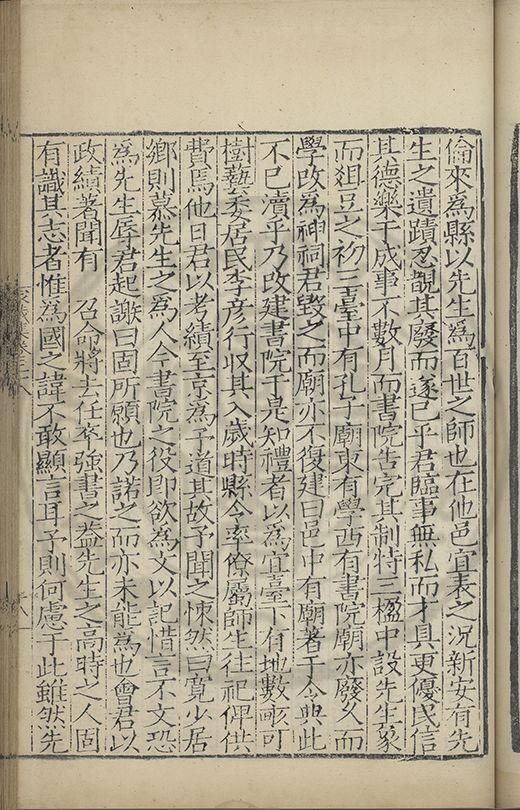 倫來為縣以先生為百世之師也在他邑宜表之況新安有先
生之遺蹟忍觀其廢而遂已乎君臨事無私而才具更優民信
其德樂于成事不數月而書院告完其制特三楹中設先生象
而俎豆之初三臺中有孔子廟東有學西有書院廟亦廢久而
學改為神祠君毀之而廟亦不復建曰邑中有廟著于令典此
不已瀆乎乃改建書院于是知禮者以為宜臺下有地數畝可
樹藝委居民李彥行収其入歲時縣令率僚屬師生往祀俾供
費焉他日君以考績至京為予道其故予聞之悚然曰寬少居
鄉則慕先生之為人今書院之役即欲為文以記惜言不文恐
為先生辱君起謝曰固所願也乃諾之而亦未能為也會君以
政績著聞有 召命將去任卒強書之葢先生之高時之人固
有識其志者惟為國之諱不敢顯言耳予則何慮于此雖然先